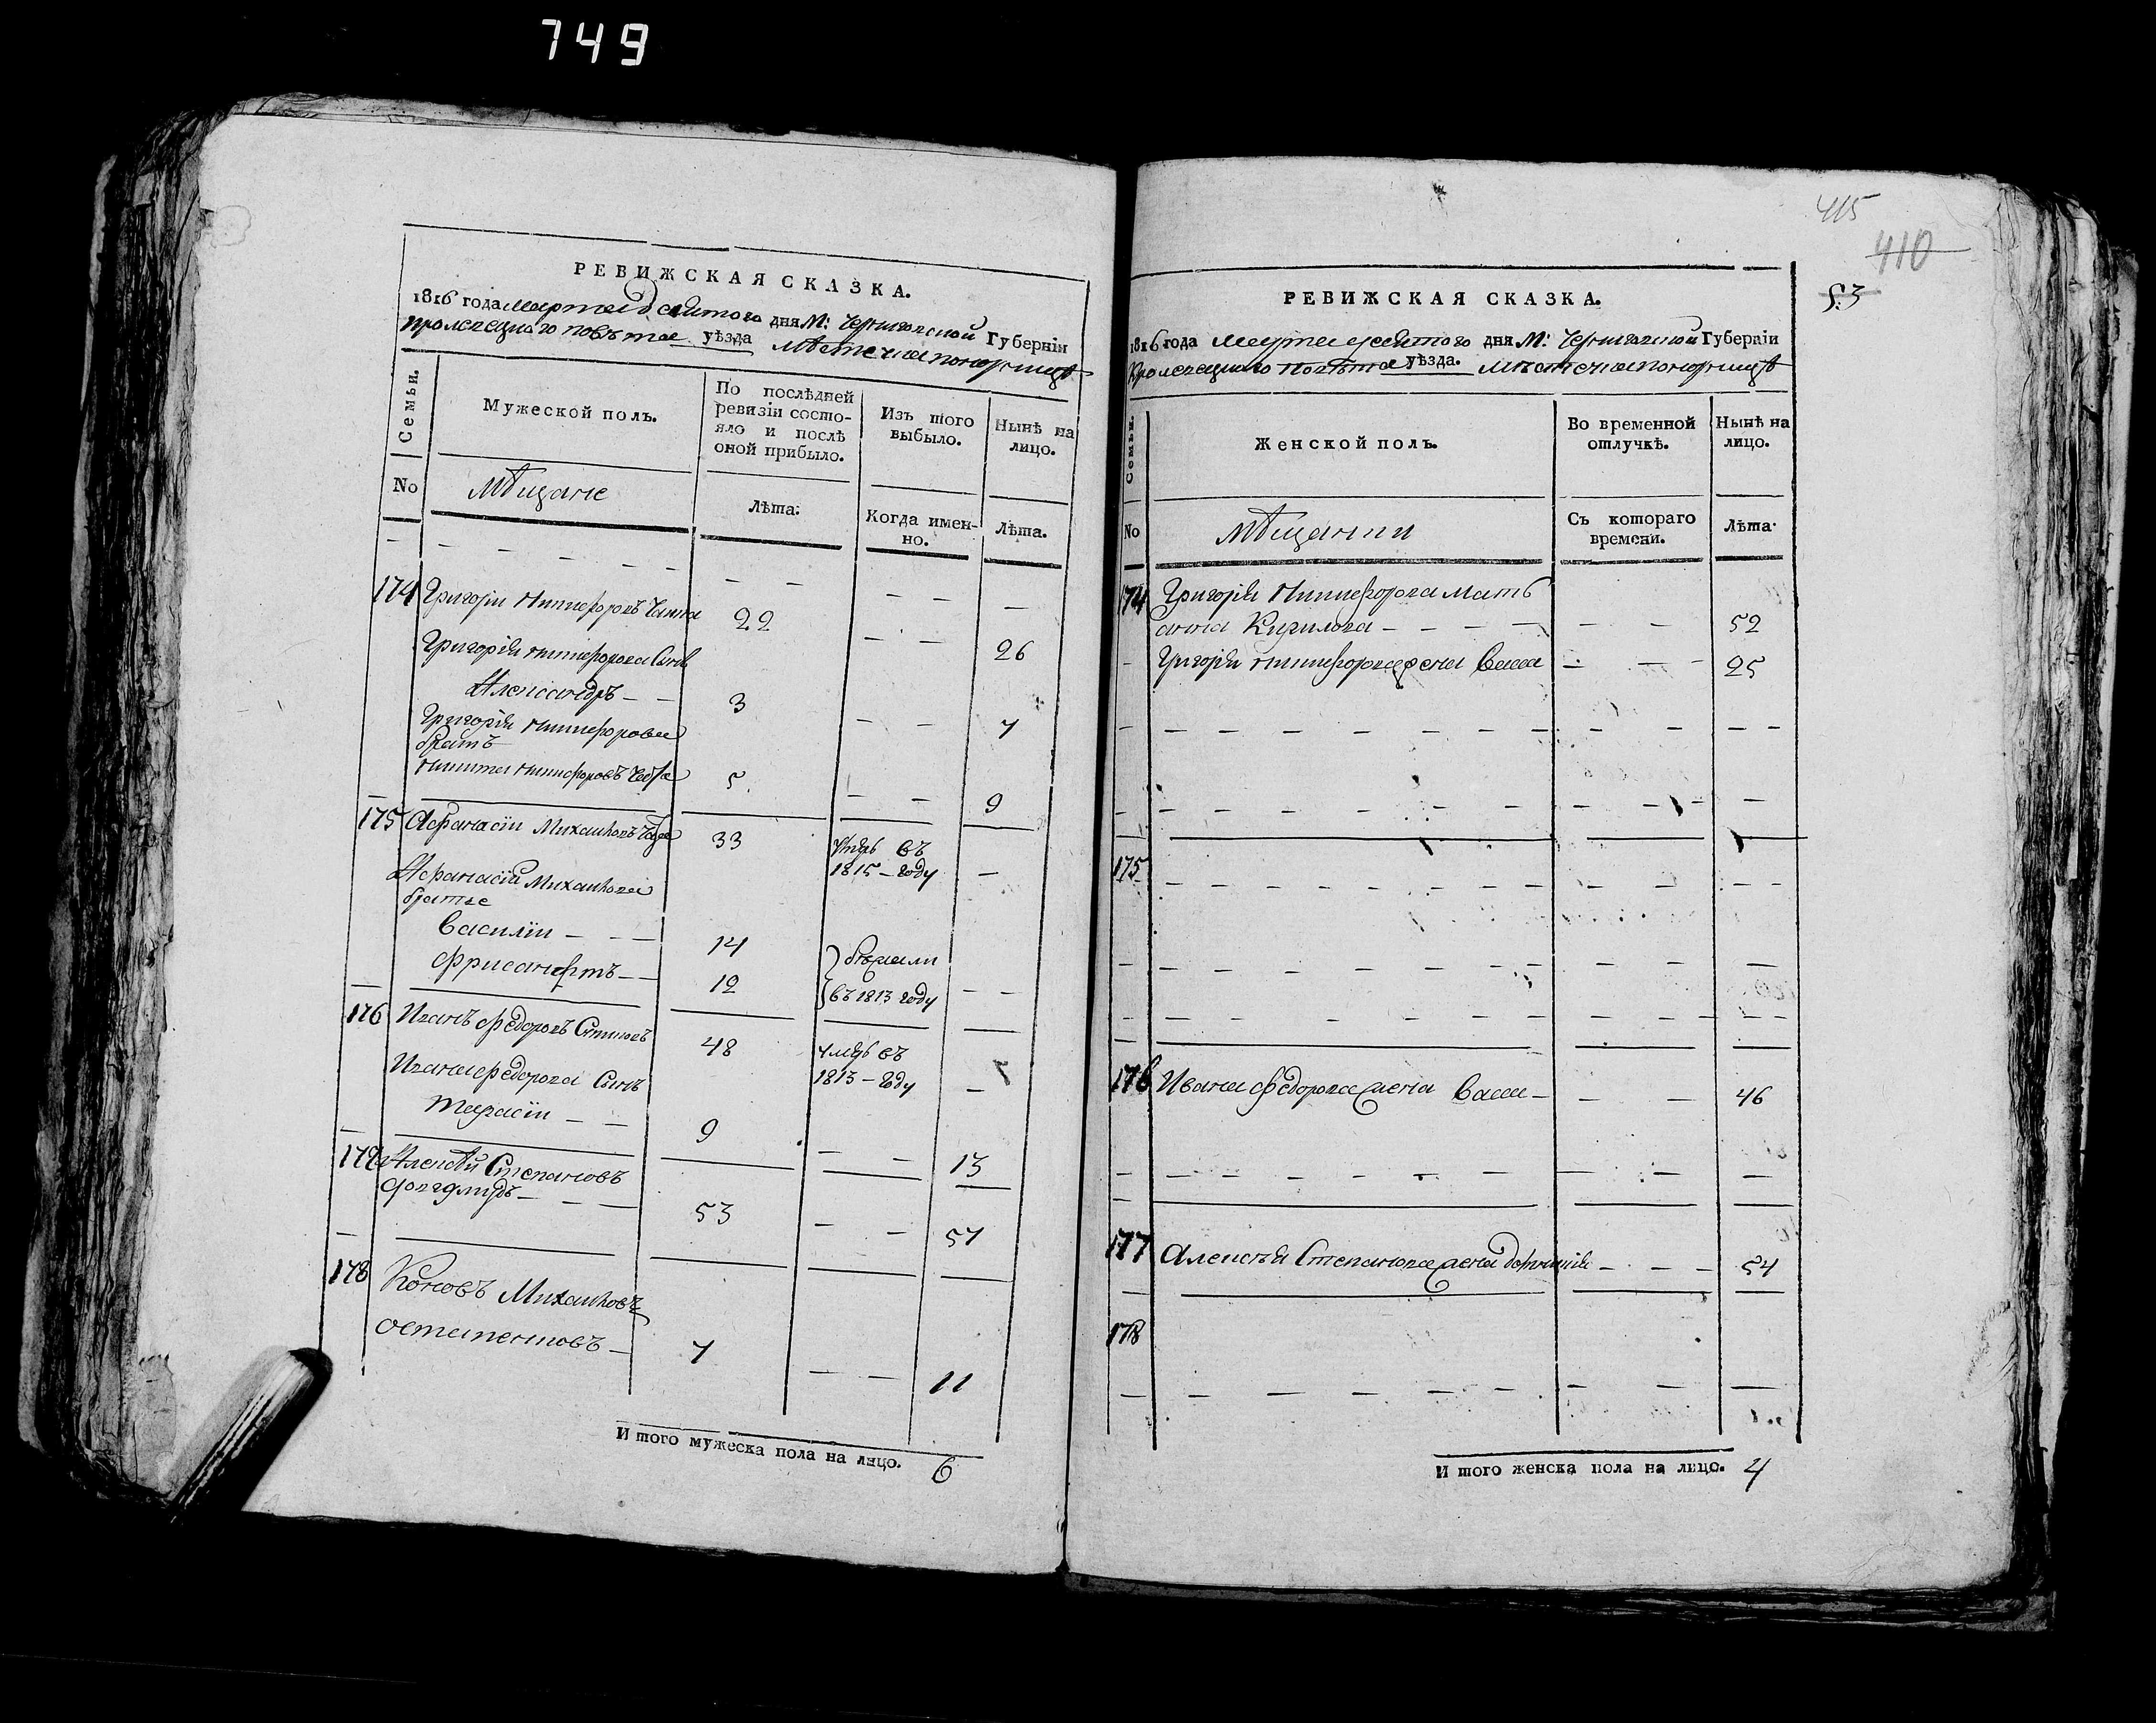 749
РЕВИЖСКАЯ СКАЗКА.
1816 года Марта десятого дня М: Черниговской Губерніи
Кролевецкого повѣта уѣзда Мѣстечка Понорницѣ
Семьи.
Мужеской полъ.
По послѣдней ревизіи состояло и послѣ оной прибыло.
Изъ того выбыло.
Нынѣ на лицо.
No
Мѣщане
Лѣта.
Когда именно.
Лѣта.
174 Григоріи Никифоровъ 22 26
Григорія Никифорова Сынъ
Александръ 3 7
Григорія Никифорова
братъ
Никита Никифоровъ 5 9
175 Афанасіи Михайловъ 33 умре въ
1815 - году
Афанасія Михайлова
братья
Василіи 14 бежали
Фрисанфтъ 12 въ 1813 году
176 Иванъ Федоровъ 48 умре въ
1813 - году
Ивана Федорова Сынъ
Тарасіи 9 13
177 Алексѣй Степановъ
53 57
178 Михайловъ
7 11
И того мужеска пола на лицо. 6
415
410
53
РЕВИЖСКАЯ СКАЗКА.
1816 года Марта десятого дня М: Черниговской Губерніи
Кролевецкого повѣта уѣзда. Мѣстечка Понорницѣ
Семьи.
Женской полъ.
Во временной отлучкѣ.
Нынѣ на лицо.
No
Мѣщанки
Съ котораго времени.
Лѣта.
174 Григорія Никифорова мать
анна Кирилова 52
Григорія Никифорова жена 25
175
176 Ивана Федорова жена 46
177 Алексѣя Степанова жена 54
178
И того женска пола на лицо. 4